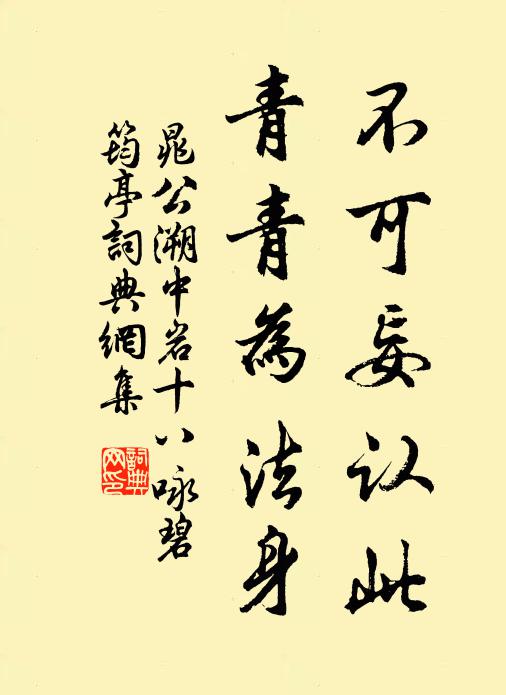 不可妄认此
青青為法身
晁公溯中岩十八咏碧
筠亭詞典網集
詞典
网印